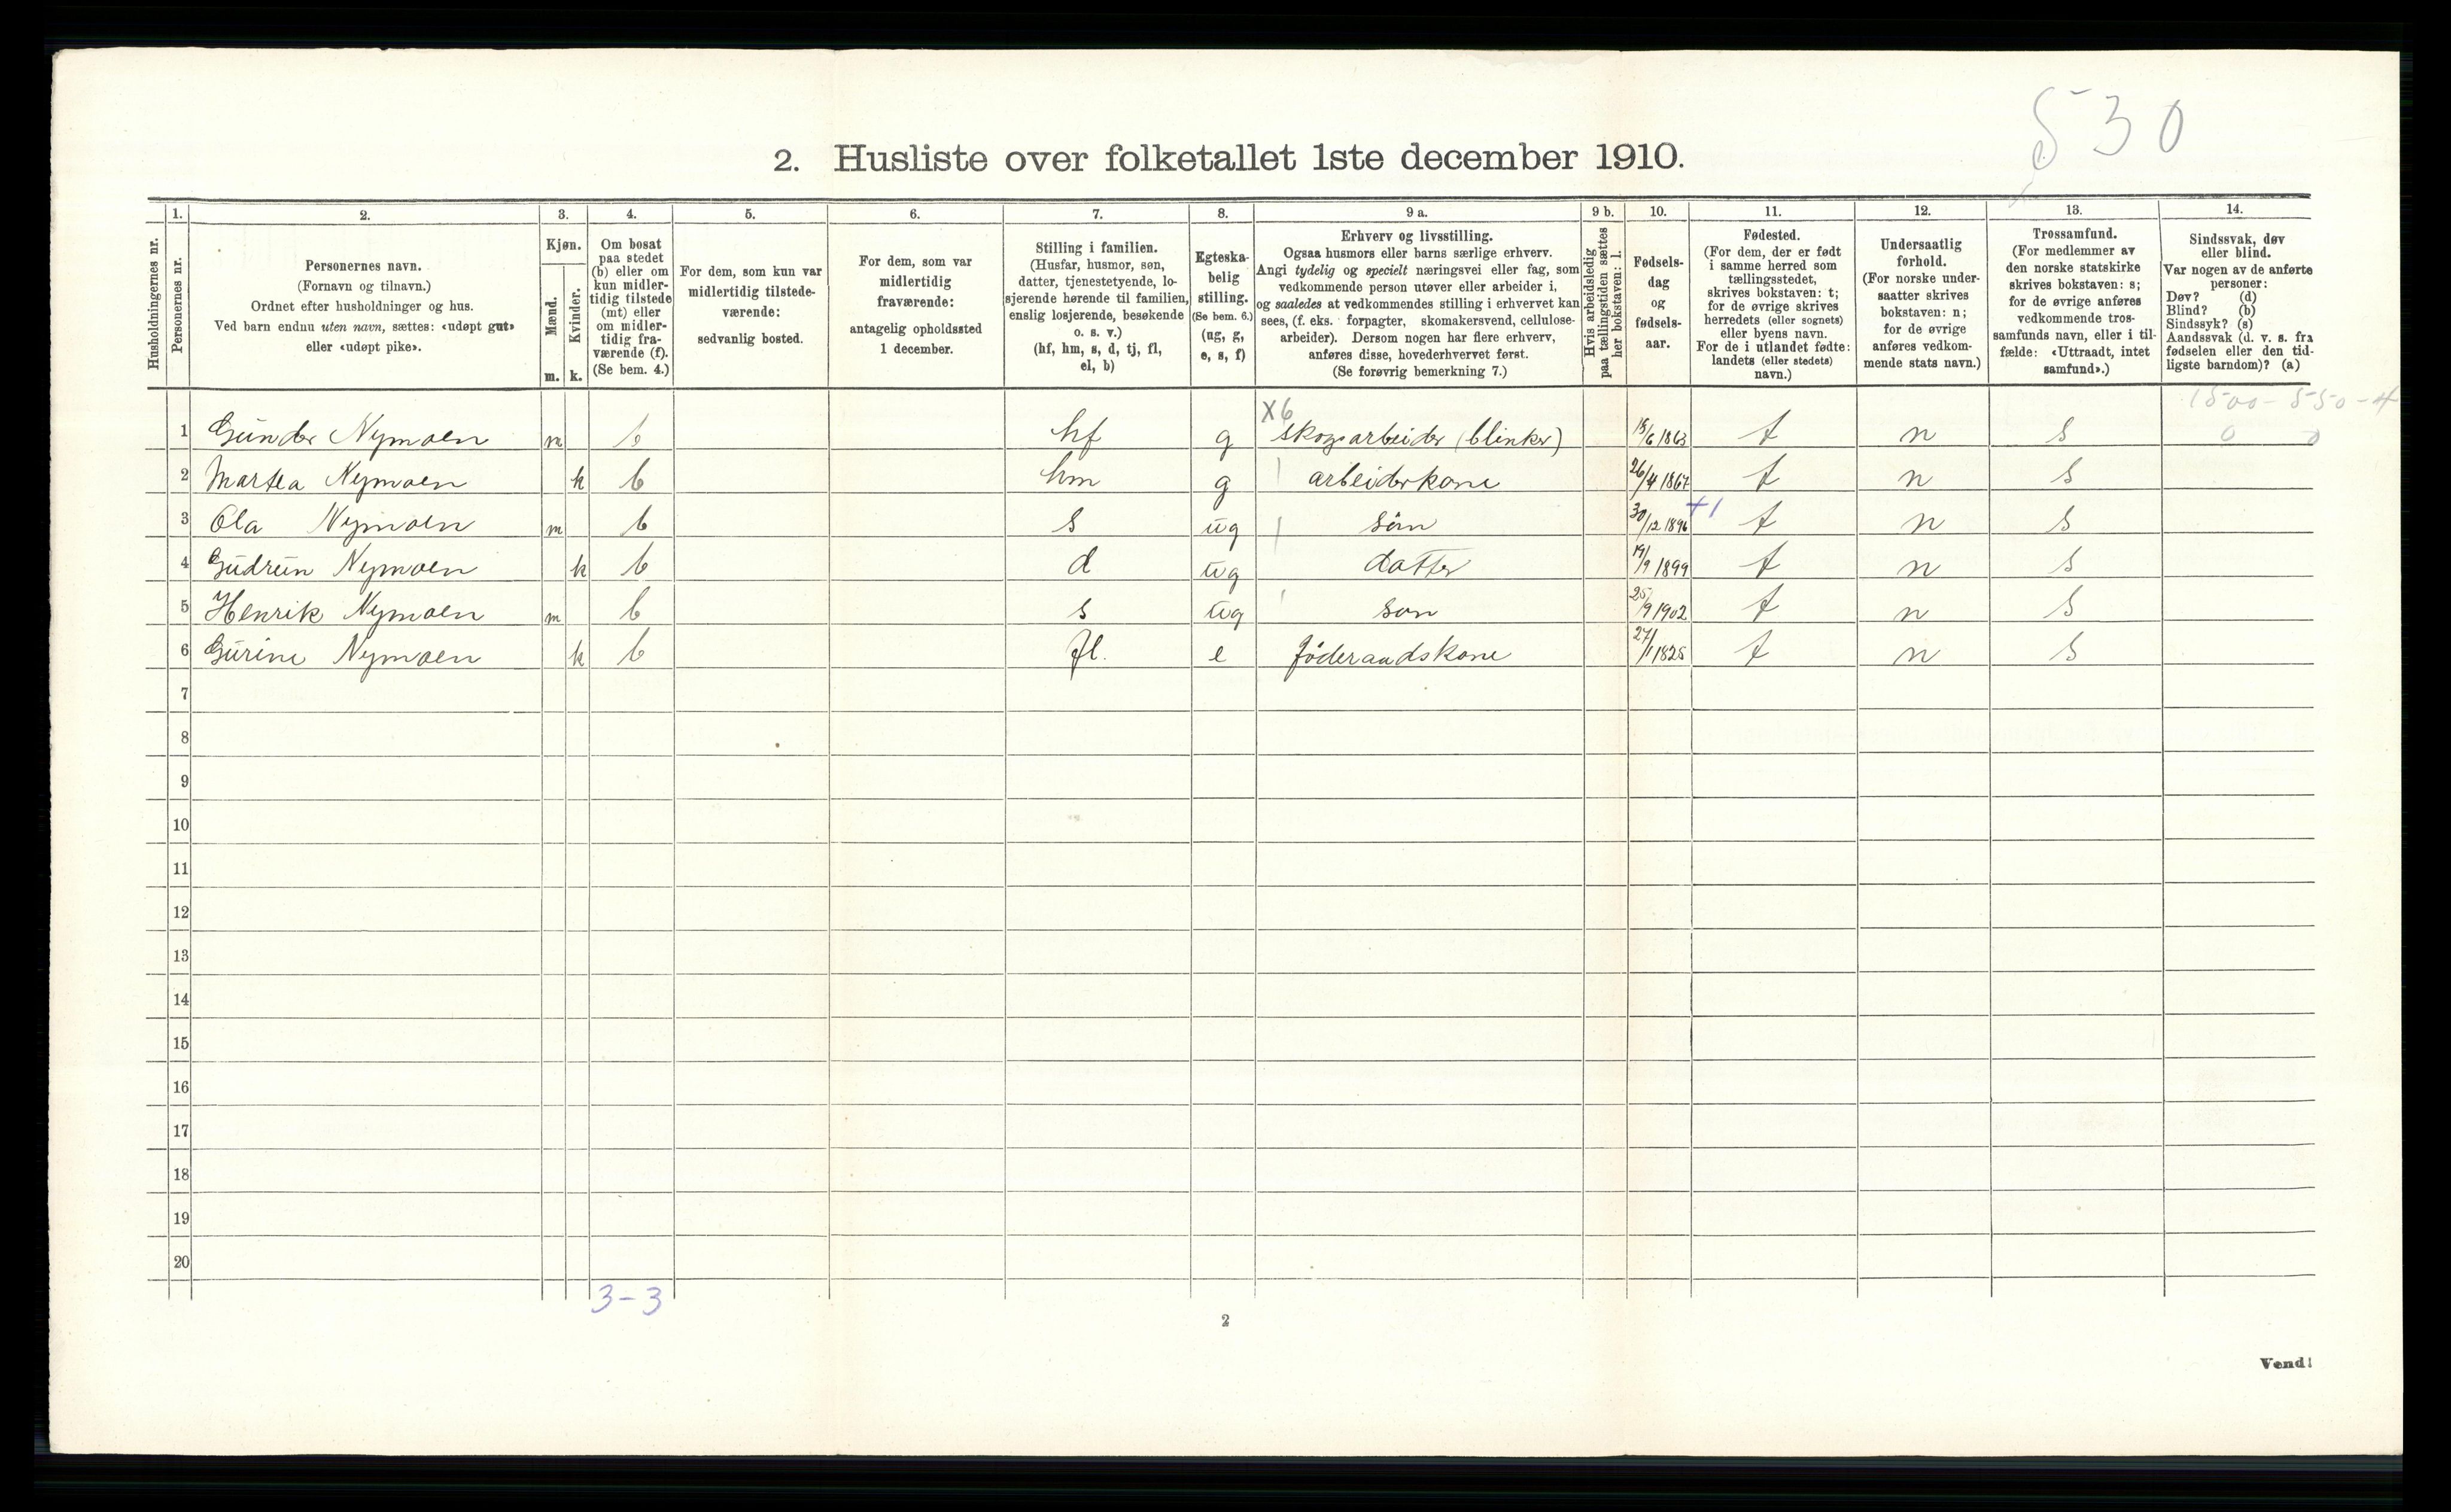 530
2. Husliste over folketallet 1ste december 1910.
1. 2. 3. 4. 5. 6. 7. 8. 9 a. 9 b. 10. 11. 12. 13. 14.
Husholdningernes nr.
Personernes nr.
Personernes navn.
(Fornavn og tilnavn.)
Ordnet efter husholdninger og hus.
Ved barn endnu uten navn, sættes: «udøpt gut»
eller «udøpt pike».
Kjøn.
Mænd.
Kvinder.
m. k.
Om bosat
paa stedet
(b) eller om
kun midler-
tidig tilstede
(mt) eller
om midler-
tidig fra-
værende (f).
(Se bem. 4.)
For dem, som kun var
midlertidig tilstede-
værende:
sedvanlig bosted.
For dem, som var
midlertidig
fraværende:
antagelig opholdssted
1 december.
Stilling i familien.
(Husfar, husmor, søn,
datter, tjenestetyende, lo-
sjerende hørende til familien,
enslig losjerende, besøkende
o. s. v.)
(hf, hm, s, d, tj, fl,
el, b)
Egteska-
belig
stilling.
(Se bem. 6.)
(ug, g,
e, s, f)
Erhverv og livsstilling.
Ogsaa husmors eller barns særlige erhverv.
Angi tydelig og specielt næringsvei eller fag, som
vedkommende person utøver eller arbeider i,
og saaledes at vedkommendes stilling i erhvervet kan
sees, (f. eks. forpagter, skomakersvend, cellulose-
arbeider). Dersom nogen har flere erhverv,
anføres disse, hovederhvervet først.
(Se forøvrig bemerkning 7.)
Hvis arbeidsledig
paa tællingstiden sættes
her bokstaven: l.
Fødsels-
dag
og
fødsels-
aar.
Fødested.
(For dem, der er født
i samme herred som
tællingsstedet,
skrives bokstaven: t;
for de øvrige skrives
herredets (eller sognets)
eller byens navn.
For de i utlandet fødte:
landets (eller stedets)
navn.)
Undersaatlig
forhold.
(For norske under-
saatter skrives
bokstaven: n;
for de øvrige
anføres vedkom-
mende stats navn.)
Trossamfund.
(For medlemmer av
den norske statskirke
skrives bokstaven: s;
for de øvrige anføres
vedkommende tros-
samfunds navn, eller i til-
fælde: «Uttraadt, intet
samfund».)
Sindssvak, døv
eller blind.
Var nogen av de anførte
personer:
Døv? (d)
Blind? (b)
Sindssyk? (s)
Aandssvak (d. v. s. fra
fødselen eller den tid-
ligste barndom)? (a)
X6 1500 - 550 - 4
1 Gunder Nymoen m b hf g skogsarbeider (blinker) 15/6 1863 t n s 0 0
2 Martea Nymoen k b hm g arbeiderkone 26/4 1867 t n s
+1
3 Ola Nymoen m b s ug søn 30/12 1896 t n s
4 Gudrun Nymoen k b d ug datter 19/9 1899 t n s
5 Henrik Nymoen m b s ug søn 25/9 1902 t n s
6 Gurine Nymoen k b fl. e føderaadskone 27/1 1825 t n s
7
8
9
10
11
12
13
14
15
16
17
18
19
20
3-3
2
Vend!